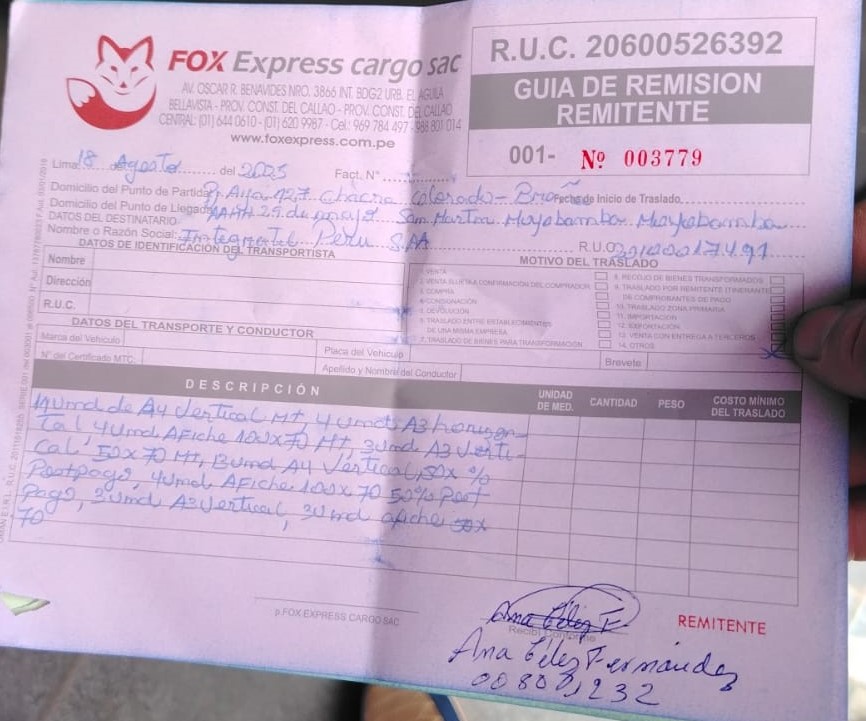 FOX Express cargo sac
AV. OSCAR R. BENAVIDES NRO. 3866 INT. BDG2 URB. EL AGUILA
BELLAVISTA - PROV. CONST. DEL CALLAO - PROV. CONST. DEL CALLAO
CENTRAL: (01) 644 0610 - (01) 620 9987 - Cel.: 969 784 497 - 988 801 014
www.foxexpress.com.pe
R.U.C. 20600526392
GUIA DE REMISION
REMITENTE
001- Nº 003779
Lima, 18 de Agosto del 2025 Fact. N°
Domicilio del Punto de Partida: 127 Chacra Colorado - Breña Fecha de Inicio de Traslado
Domicilio del Punto de Llegada: AAHH 29 de mayo San Martin Moyobamba Moyobamba
DATOS DEL DESTINATARIO
Nombre o Razón Social: Integratel Peru SAA R.U.C. 20100017491
DATOS DE IDENTIFICACIÓN DEL TRANSPORTISTA
Nombre
Dirección
R.U.C.
MOTIVO DEL TRASLADO
1. VENTA
2. VENTA SUJETA A CONFIRMACIÓN DEL COMPRADOR
3. COMPRA
4. CONSIGNACIÓN
5. DEVOLUCIÓN
6. TRASLADO ENTRE ESTABLECIMIENTOS
DE UNA MISMA EMPRESA
7. TRASLADO DE BIENES PARA TRANSFORMACIÓN
8. RECOJO DE BIENES TRANSFORMADOS
9. TRASLADO POR REMITENTE ITINERANTE
DE COMPROBANTES DE PAGO
10. TRASLADO ZONA PRIMARIA
11. IMPORTACIÓN
12. EXPORTACIÓN
13. VENTA CON ENTREGA A TERCEROS
14. OTROS X
DATOS DEL TRANSPORTE Y CONDUCTOR
Marca del Vehículo Placa del Vehículo Brevete
N° del Certificado MTC. Apellido y Nombre del Conductor
DESCRIPCIÓN UNIDAD DE MED. CANTIDAD PESO COSTO MÍNIMO DEL TRASLADO
Und de A4 Vertical Mt, 4 Und A3 horizon-
tal, 4 Und Afiche 100x70 Mt, 3 Und A3 Verti-
cal 50x70 Mt, 13 Und A4 Vertical, 50x %
Postpago, 4 Und Afiche 100x70 50% Post
Pago, 3 Und A3 Vertical, 3 Und afiche 50x
70
p.FOX EXPRESS CARGO SAC
Recibí Conforme
REMITENTE
Ana Félez Fernández